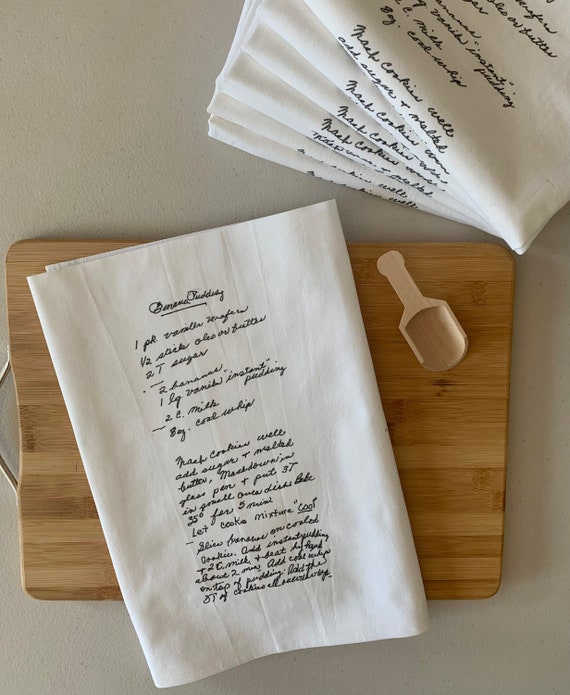 Banana Pudding
1 pk. vanilla wafers
1/2 stick oleo or butter
2 T sugar
- 2 bananas
1 lg vanilla "instant"
pudding
- 2 C. milk
- 8oz. cool whip
Mash cookies well
add sugar + melted
butter, Mash down in
glass pan + put 3T
in small oven dish. Bake
350° for 5 min
Let cookie mixture "cool"
- Slice bananas on cooled
cookie. Add instant pudding
+ 2 C. milk, + beat by hand
about 2 min. Add cool whip
on top of pudding. Add the
3T of cookies all over the top
wafers
oleo or butter
2 bananas
1 lg vanilla "instant"
pudding
2 C. milk
8oz. cool whip
Mash cookies well
add sugar + melted
Mash cookies well
add sugar + melted
Mash cookies